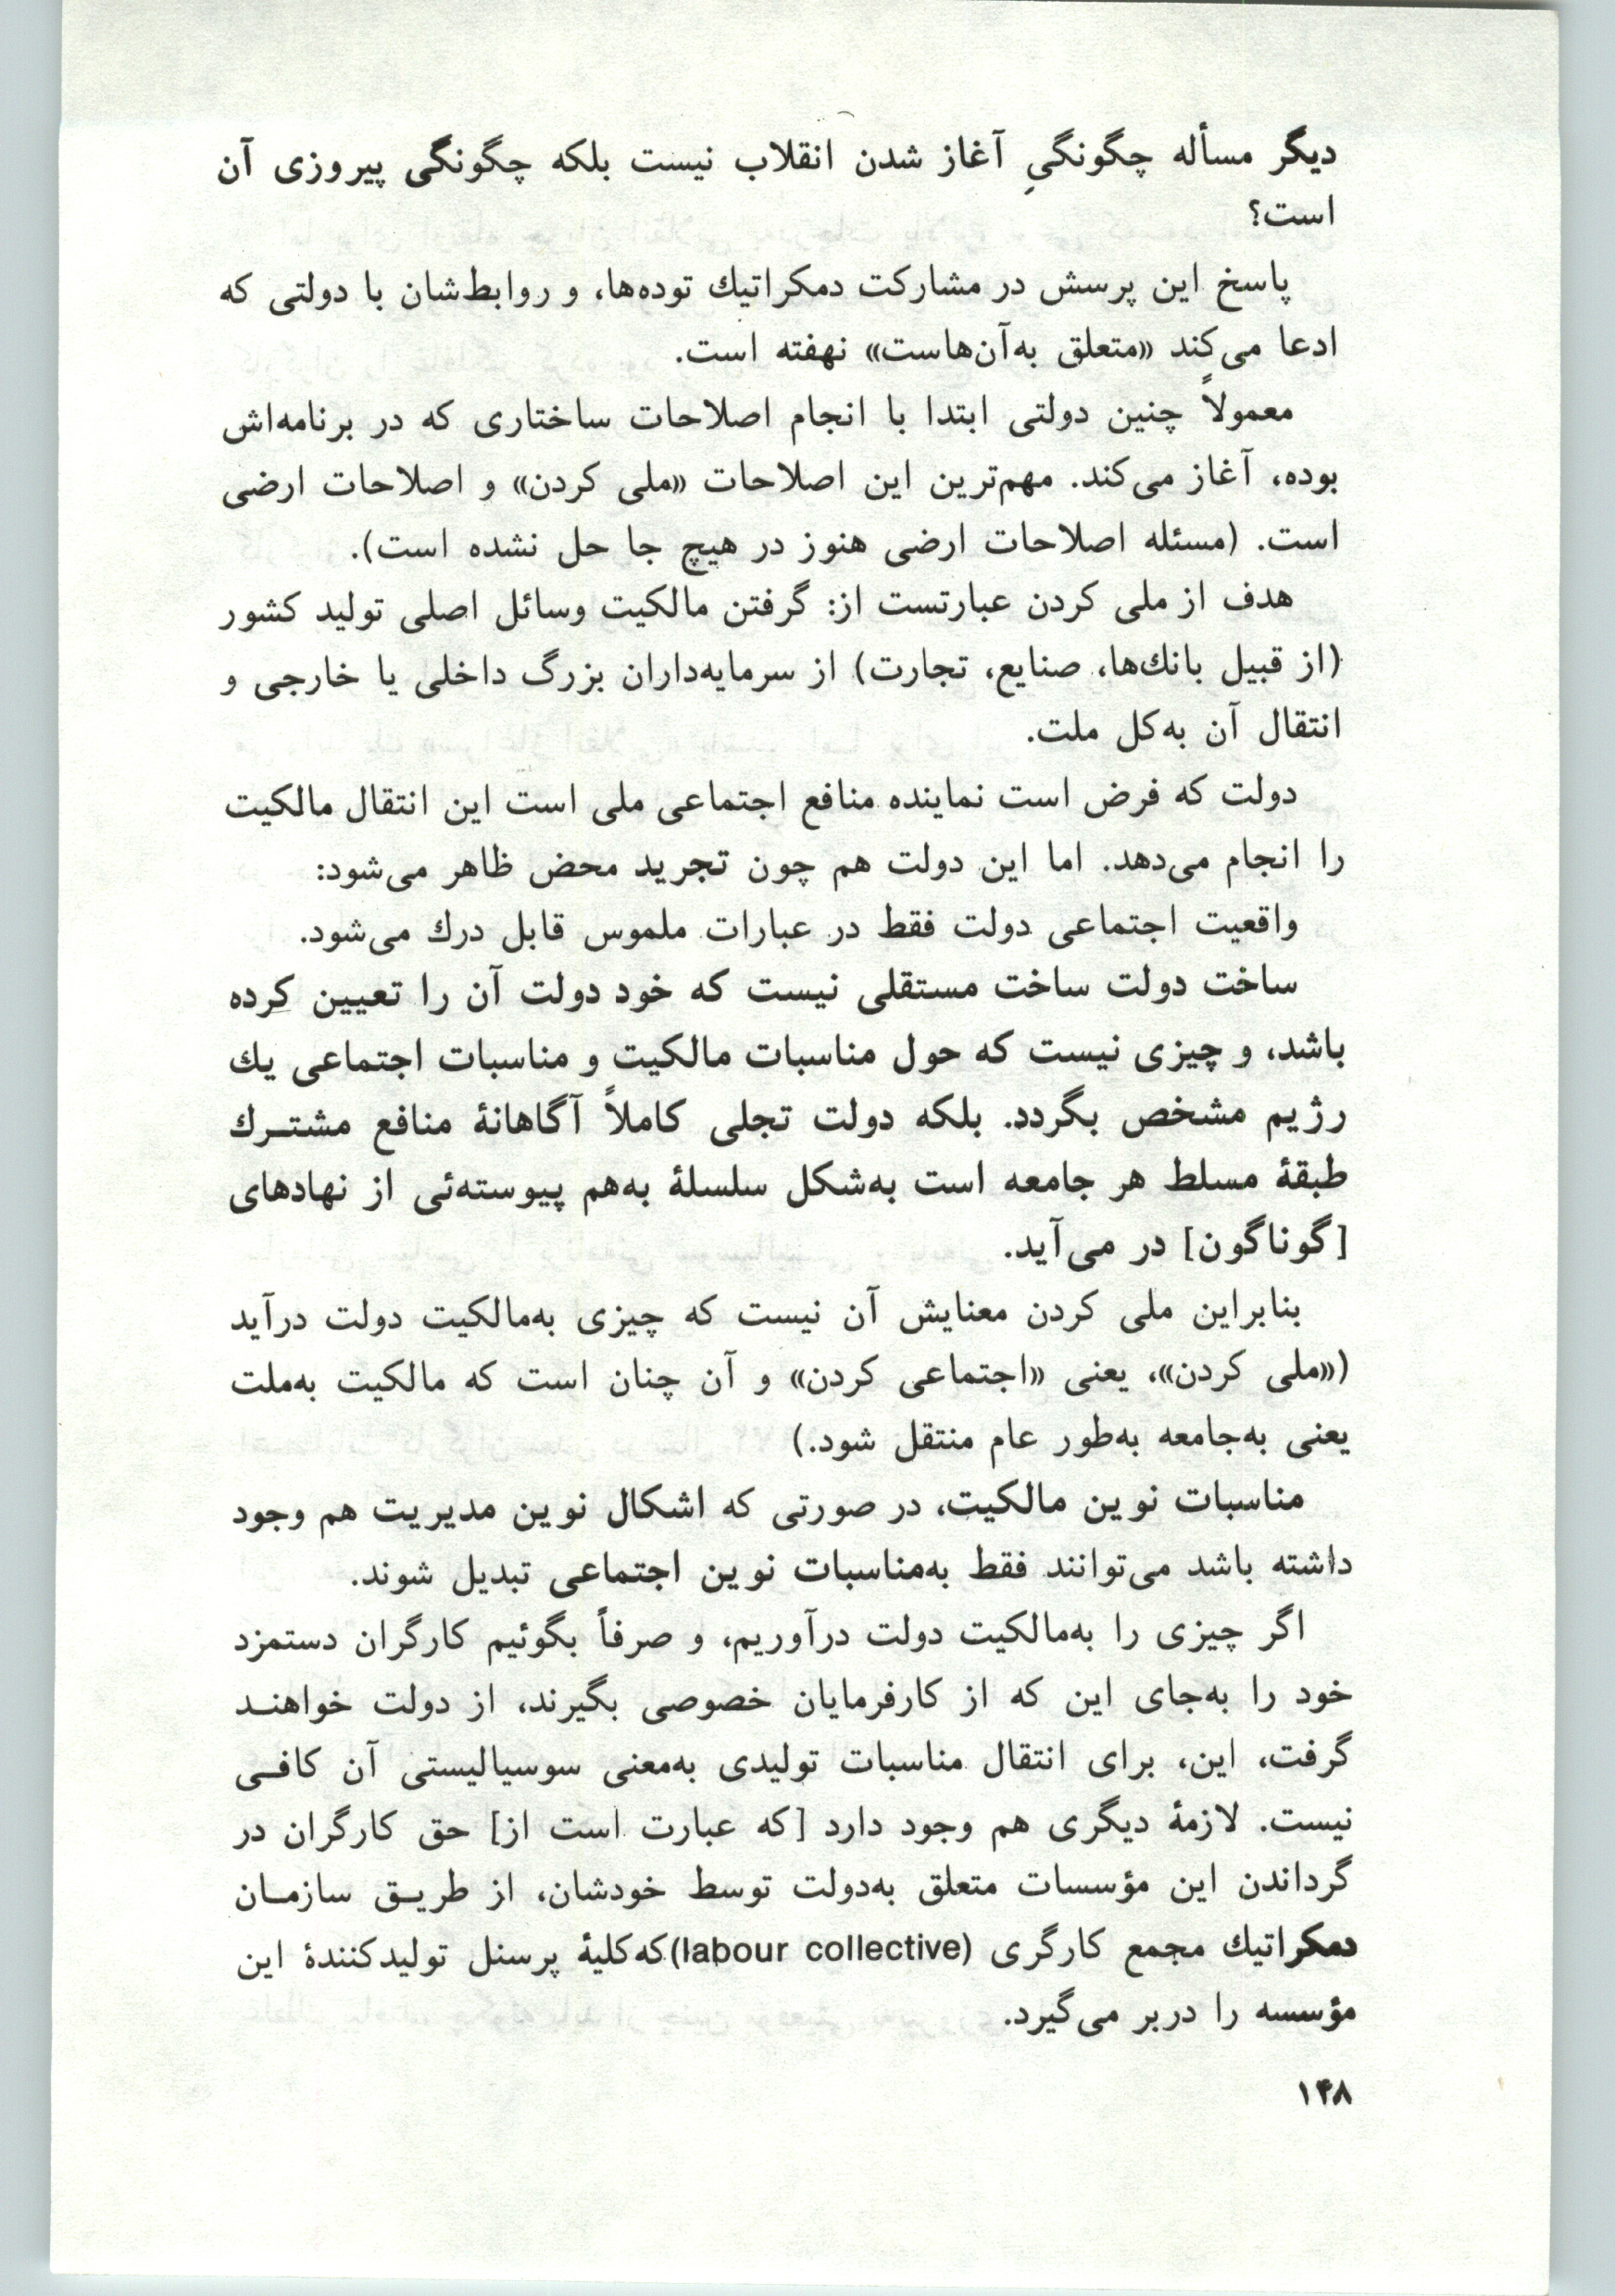 دیگر مسأله چگونگیِ آغاز شدن انقلاب نیست بلکه چگونگی پیروزی آن
است؟
پاسخ این پرسش در مشارکت دمکراتیك توده‌ها، و روابط‌شان با دولتی که
ادعا می‌کند «متعلق به‌آن‌هاست» نهفته است.
معمولاً چنین دولتی ابتدا با انجام اصلاحات ساختاری که در برنامه‌اش
بوده، آغاز می‌کند. مهم‌ترین این اصلاحات «ملی کردن» و اصلاحات ارضی
است. (مسئله اصلاحات ارضی هنوز در هیچ جا حل نشده است).
هدف از ملی کردن عبارتست از: گرفتن مالکیت وسائل اصلی تولید کشور
(از قبیل بانك‌ها، صنایع، تجارت) از سرمایه‌داران بزرگ داخلی یا خارجی و
انتقال آن به‌کل ملت.
دولت که فرض است نماینده منافع اجتماعی ملی است این انتقال مالکیت
را انجام می‌دهد. اما این دولت هم چون تجرید محض ظاهر می‌شود:
واقعیت اجتماعی دولت فقط در عبارات ملموس قابل درك می‌شود.
ساخت دولت ساخت مستقلی نیست که خود دولت آن را تعیین کرده
باشد، و چیزی نیست که حول مناسبات مالکیت و مناسبات اجتماعی یك
رژیم مشخص بگردد. بلکه دولت تجلی کاملاً آگاهانهٔ منافع مشترك
طبقهٔ مسلط هر جامعه است به‌شکل سلسلهٔ به‌هم پیوسته‌ئی از نهادهای
[گوناگون] در می‌آید.
بنابراین ملی کردن معنایش آن نیست که چیزی به‌مالکیت دولت درآید
(«ملی کردن»، یعنی «اجتماعی کردن» و آن چنان است که مالکیت به‌ملت
یعنی به‌جامعه به‌طور عام منتقل شود.)
مناسبات نوین مالکیت، در صورتی که اشکال نوین مدیریت هم وجود
داشته باشد می‌توانند فقط به‌مناسبات نوین اجتماعی تبدیل شوند.
اگر چیزی را به‌مالکیت دولت درآوریم، و صرفاً بگوئیم کارگران دستمزد
خود را به‌جای این که از کارفرمایان خصوصی بگیرند، از دولت خواهند
گرفت، این، برای انتقال مناسبات تولیدی به‌معنی سوسیالیستی آن کافی
نیست. لازمهٔ دیگری هم وجود دارد [که عبارت است از] حق کارگران در
گرداندن این مؤسسات متعلق به‌دولت توسط خودشان، از طریق سازمان
دمکراتیك مجمع کارگری (labour collective) که کلیهٔ پرسنل تولیدکنندهٔ این
مؤسسه را دربر می‌گیرد.
۱۴۸